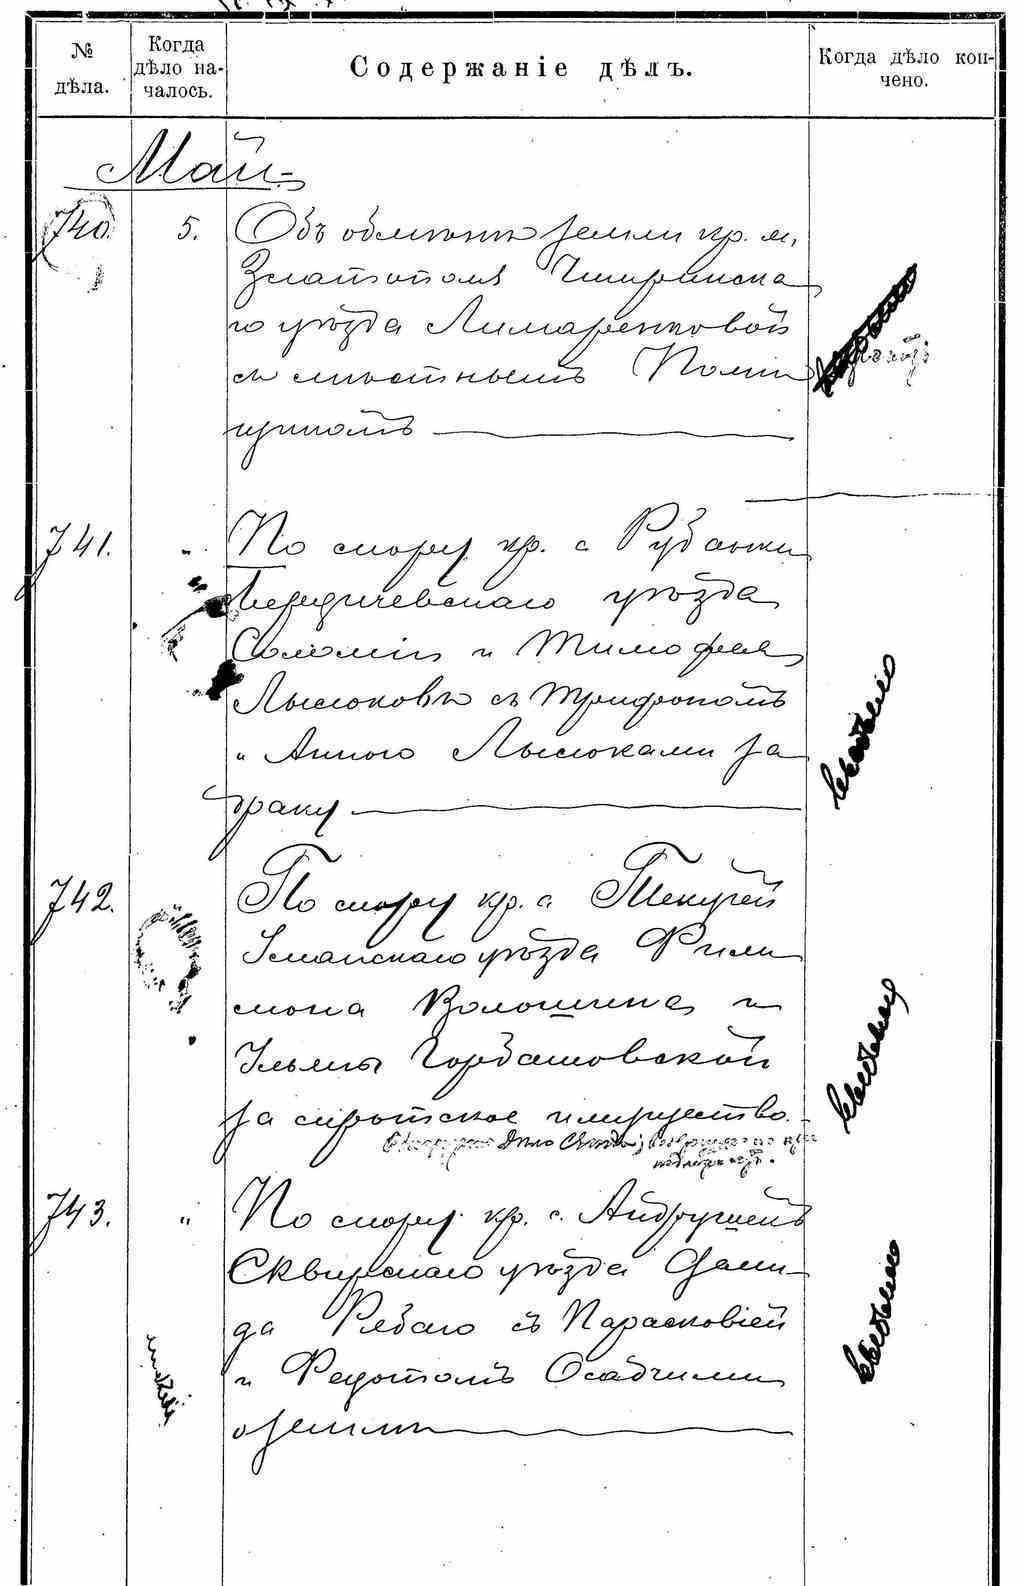 № дѣла.
Когда дѣло началось.
Содержаніе дѣлъ.
Когда дѣло кончено.
Май.
740. 5. Объ обмѣнѣ земли кр. м.
Златополя Чигиринска
го уѣзда Лимаренковой
съ мѣстнымъ Помѣ
щикомъ
741. „ По спору кр. с. Рубанки
Бердичевскаго уѣзда
Соломіи и Тимофея
Лысюковъ съ Трифономъ
и Анною Лысюками за
драку
742. По спору кр. с.
Уманскаго уѣзда Фили
мона Волошина и
Ульяны Горбашовской
за сиротское имущество.
743. „ По спору кр. с. Андрушекъ
Сквирскаго уѣзда Деми
да Рябаго съ Парасковіей
и Федотомъ Осадчими
о землѣ